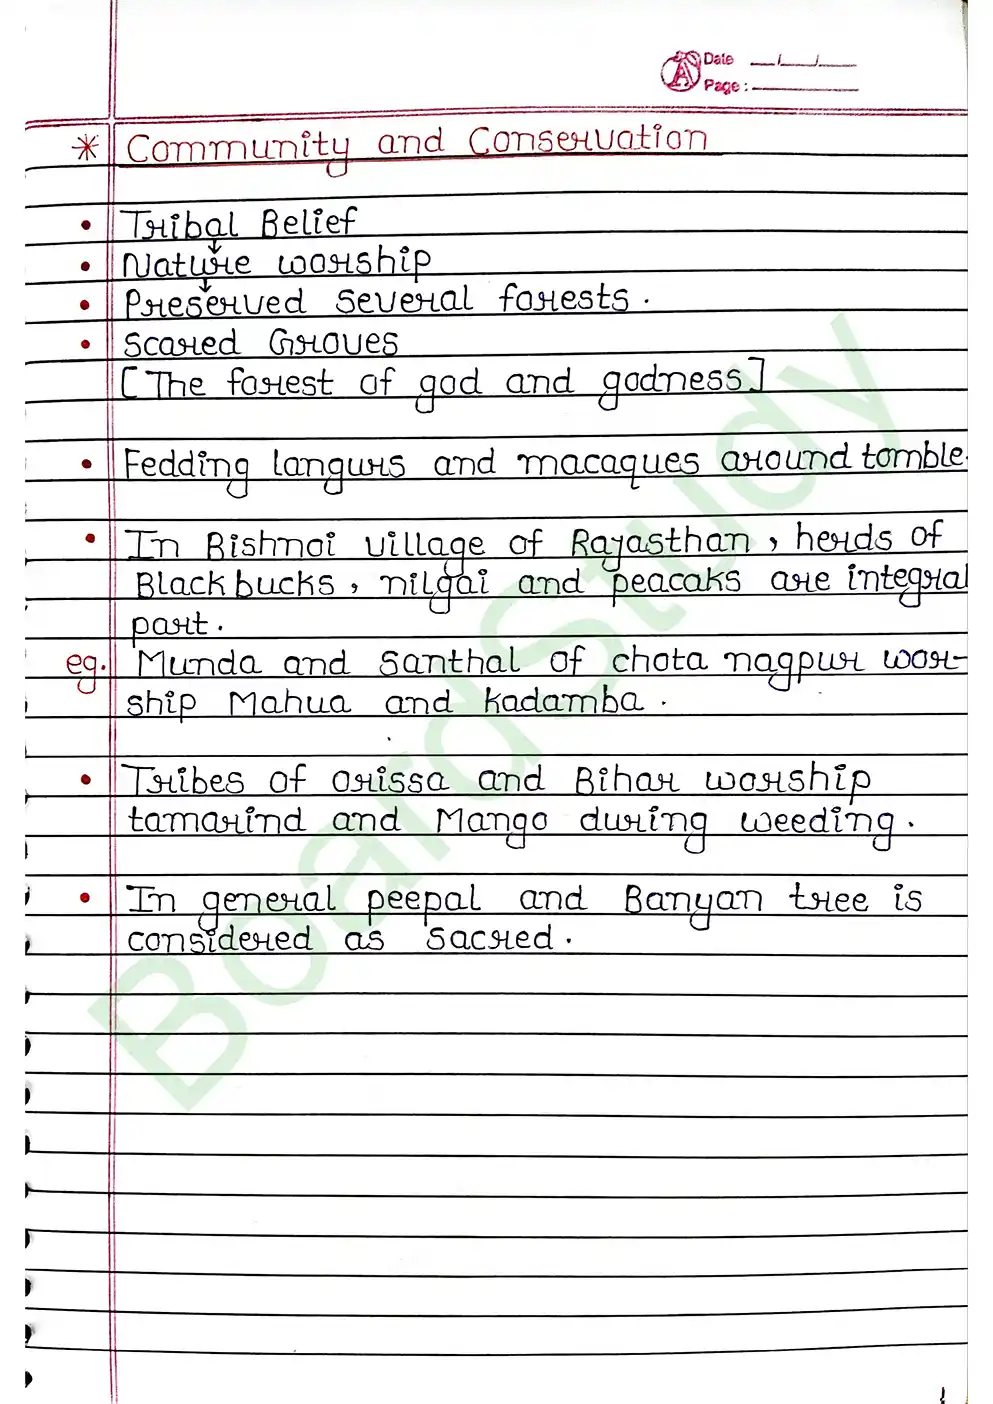 Date __/__/__
Page : ______
* Community and Conservation
• Tribal Belief
↓
• Nature worship
↓
• Preserved several forests.
• Scared Groves
[The forest of god and godness]
• Fedding langurs and macaques around tomble.
• In Bishnoi village of Rajasthan, herds of
Blackbucks, nilgai and peacaks are integral
part.
eg. Munda and Santhal of chota nagpur wor-
ship Mahua and kadamba.
• Tribes of orissa and Bihar worship
tamarind and Mango during weeding.
• In general peepal and Banyan tree is
considered as sacred.
BoardStudy